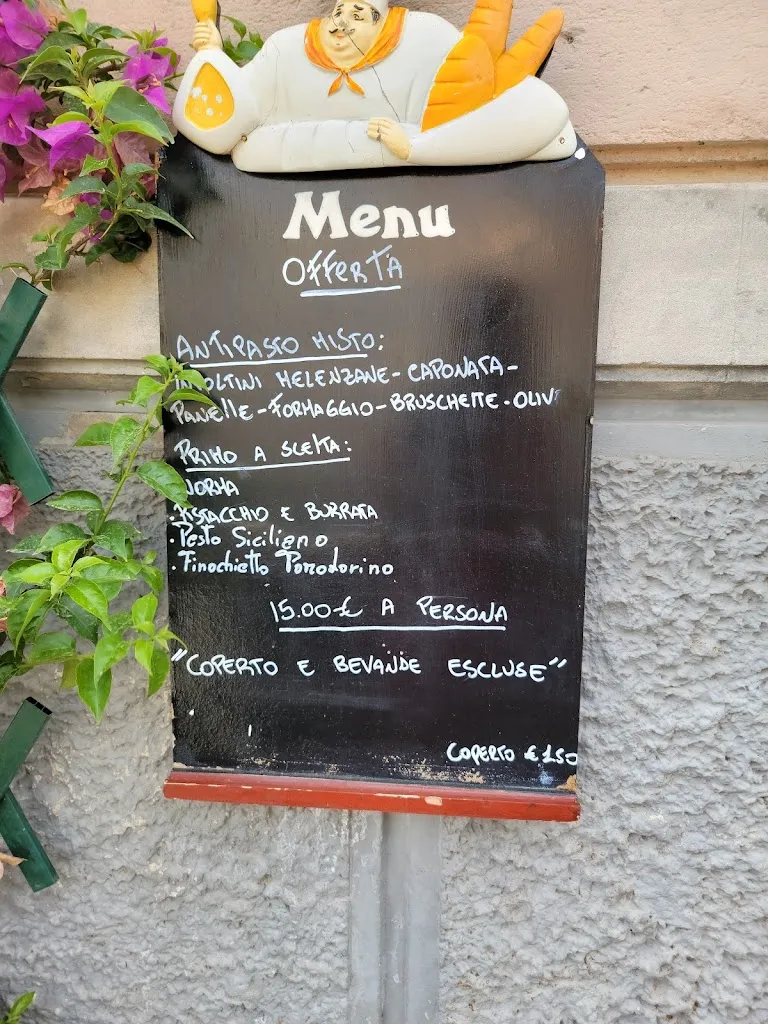 Menu
OFFERTA
ANTIPASTO MISTO:
INVOLTINI MELENZANE - CAPONATA -
PANELLE - FORMAGGIO - BRUSCHETTE - OLIV
PRIMO A SCELTA:
NORMA
. PISTACCHIO E BURRATA
. Pesto Siciliano
. Finochietto Pomodorino
15.00 € A PERSONA
"COPERTO E BEVANDE ESCLUSE"
COPERTO € 1.50